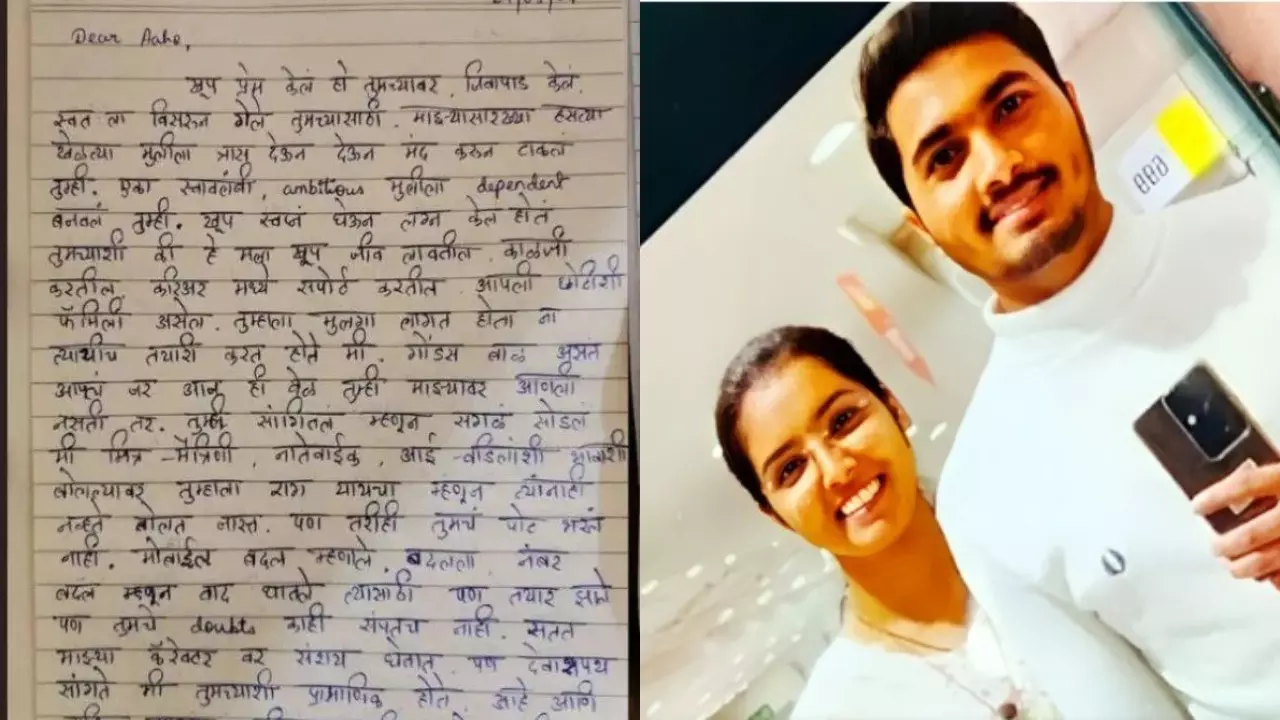 Dear Aaho,
खूप प्रेम केलं हो तुमच्यावर. जिवापाड केलं.
स्वत ला विसरुन गेले तुमच्यासाठी. माझ्यासारख्या हसत्या
खेळत्या मुलीला त्रास देऊन देऊन मंद करुन टाकलं
तुम्ही. एका स्वावलंबी, ambitious मुलीला dependent
बनवलं तुम्ही. खूप स्वप्नं घेऊन लग्न केल होतं
तुमच्याशी की हे मला खूप जीव लावतील. काळजी
करतील, करिअर मध्ये सपोर्ट करतील. आपली छोटीशी
फॅमिली असेल. तुम्हाला मुलगा लागत होता ना
त्याचीच तयारी करत होते मी. गोंडस बाळ असतं
आपलं जर आज ही वेळ तुम्ही माझ्यावर आणली
नसती तर. तुम्ही सांगितलं म्हणून सगळं सोडलं
मी मित्र-मैत्रिणी, नातेवाईक, आई-वडिलांशी भावाशी
बोलल्यावर तुम्हाला राग यायचा म्हणून त्यांनाही
नव्हते बोलत जास्त. पण तरीही तुमचं पोट भरलं
नाही. मोबाईल बदल म्हणाले, बदलला. नंबर
बदल म्हणून वाद घातले त्यासाठी पण तयार झाले
पण तुमचे doubts काही संपतच नाही. सतत
माझ्या कॅरेक्टर वर संशय घेतात. पण देवाशपथ
सांगते मी तुमच्याशी प्रामाणिक होते, आहे आणि